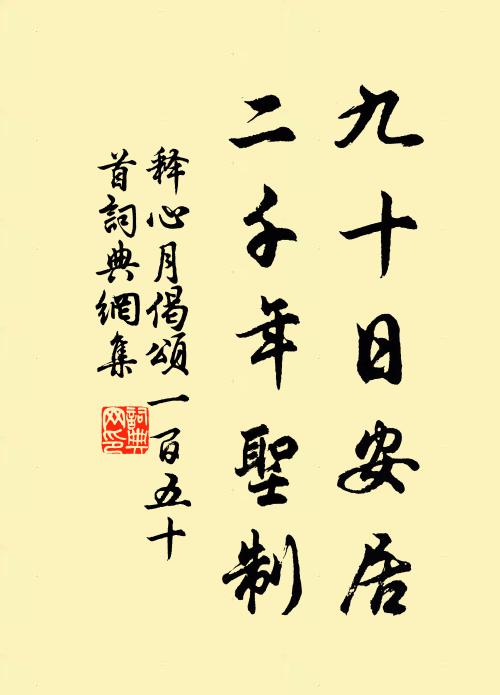 九十日安居
二千年聖制
释心月偈頌一百五十
首詞典網集
詞典网印